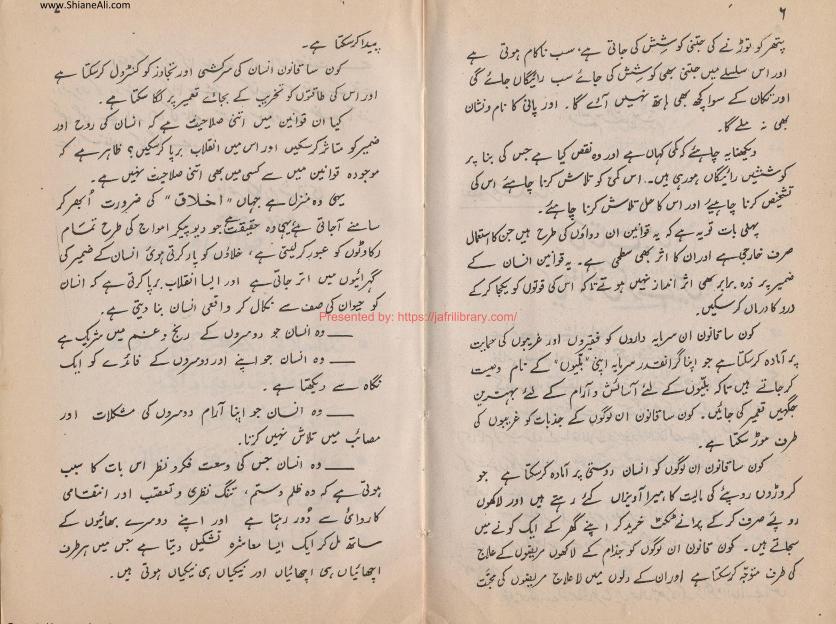 www.ShianeAli.com
۶
پتھر کو توڑنے کی جتنی کوشش کی جاتی ہے، سب ناکام ہوتی ہے
اور اس سلسلے میں جتنی بھی کوشش کی جائے سب رائیگاں جائے گی
اور تکان کے سوا کچھ بھی ہاتھ نہیں آئے گا۔ اور پانی کا نام و نشان
بھی نہ ملے گا۔
دیکھنا یہ چاہئے کہ کمی کہاں ہے اور وہ نقص کیا ہے جس کی بنا پر
کوششیں رائیگاں ہو رہی ہیں۔ اس کمی کو تلاش کرنا چاہئے اس کی
تشخیص کرنا چاہیئے اور اس کا حل تلاش کرنا چاہئے۔
پہلی بات تو یہ ہے کہ یہ قوانین ان دواؤں کی طرح ہیں جن کا استعمال
صرف خارجی ہے اور ان کا اثر بھی سطحی ہے۔ یہ قوانین انسان کے
ضمیر پر ذرہ برابر بھی اثر انداز نہیں ہوتے تاکہ اس کی قوتوں کو یکجا کر کے
درد کا درماں کر سکیں۔
کون سا قانون ان سرمایہ داروں کو فقیروں اور غریبوں کی حمایت
پر آمادہ کر سکتا ہے جو اپنا گرانقدر سرمایہ اپنی "بلّیوں" کے نام وصیت
کر جاتے ہیں تاکہ بلّیوں کے لئے آسائش و آرام کے لئے بہترین
جگہیں تعمیر کی جائیں۔ کون سا قانون ان لوگوں کے جذبات کو غریبوں کی
طرف موڑ سکتا ہے۔
کون سا قانون ان لوگوں کو انسان دوستی پر آمادہ کر سکتا ہے جو
کروڑوں روپئے کی مالیت کا ہیرا آویزاں کئے رہتے ہیں اور لاکھوں
روپئے صرف کر کے پرانے ٹکٹ خرید کر اپنے گھر کے ایک کونے میں
سجاتے ہیں۔ کون قانون ان لوگوں کو جذام کے لاکھوں مریضوں کے علاج
کی طرف متوجّہ کر سکتا ہے اور ان کے دلوں میں لا علاج مریضوں کی محبّت
پیدا کر سکتا ہے۔
کون سا قانون انسان کی سرکشی اور تجاوز کو کنٹرول کر سکتا ہے
اور اس کی طاقتوں کو تخریب کے بجائے تعمیر پر لگا سکتا ہے۔
کیا ان قوانین میں اتنی صلاحیت ہے کہ انسان کی روح اور
ضمیر کو متاثر کر سکیں اور اس میں انقلاب برپا کر سکیں؟ ظاہر ہے کہ
موجودہ قوانین میں سے کسی میں بھی اتنی صلاحیت نہیں ہے۔
یہی وہ منزل ہے جہاں "اخلاق" کی ضرورت اُبھر کر
سامنے آجاتی ہے یہی وہ حقیقت ہے جو دیو پیکر امواج کی طرح تمام
رکاوٹوں کو عبور کر لیتی ہے، خلاؤں کو پار کرتی ہوئی انسان کے ضمیر کی
گہرائیوں میں اتر جاتی ہے اور ایسا انقلاب برپا کرتی ہے کہ انسان
کو حیوان کی صف سے نکال کر واقعی انسان بنا دیتی ہے۔
Presented by: https://jafrilibrary.com/
— وہ انسان جو دوسروں کے رنج و غم میں شریک ہے
— وہ انسان جو اپنے اور دوسروں کے فائدے کو ایک
نگاہ سے دیکھتا ہے۔
— وہ انسان جو اپنا آرام دوسروں کی مشکلات اور
مصائب میں تلاش نہیں کرتا۔
— وہ انسان جس کی وسعت فکر و نظر اس بات کا سبب
ہوتی ہے کہ وہ ظلم و ستم، تنگ نظری و تعصب اور انتقامی
کاروائی سے دُور رہتا ہے اور اپنے دوسرے بھائیوں کے
ساتھ مل کر ایک ایسا معاشرہ تشکیل دیتا ہے جس میں ہر طرف
اچھائیاں ہی اچھائیاں اور نیکیاں ہی نیکیاں ہوتی ہیں۔